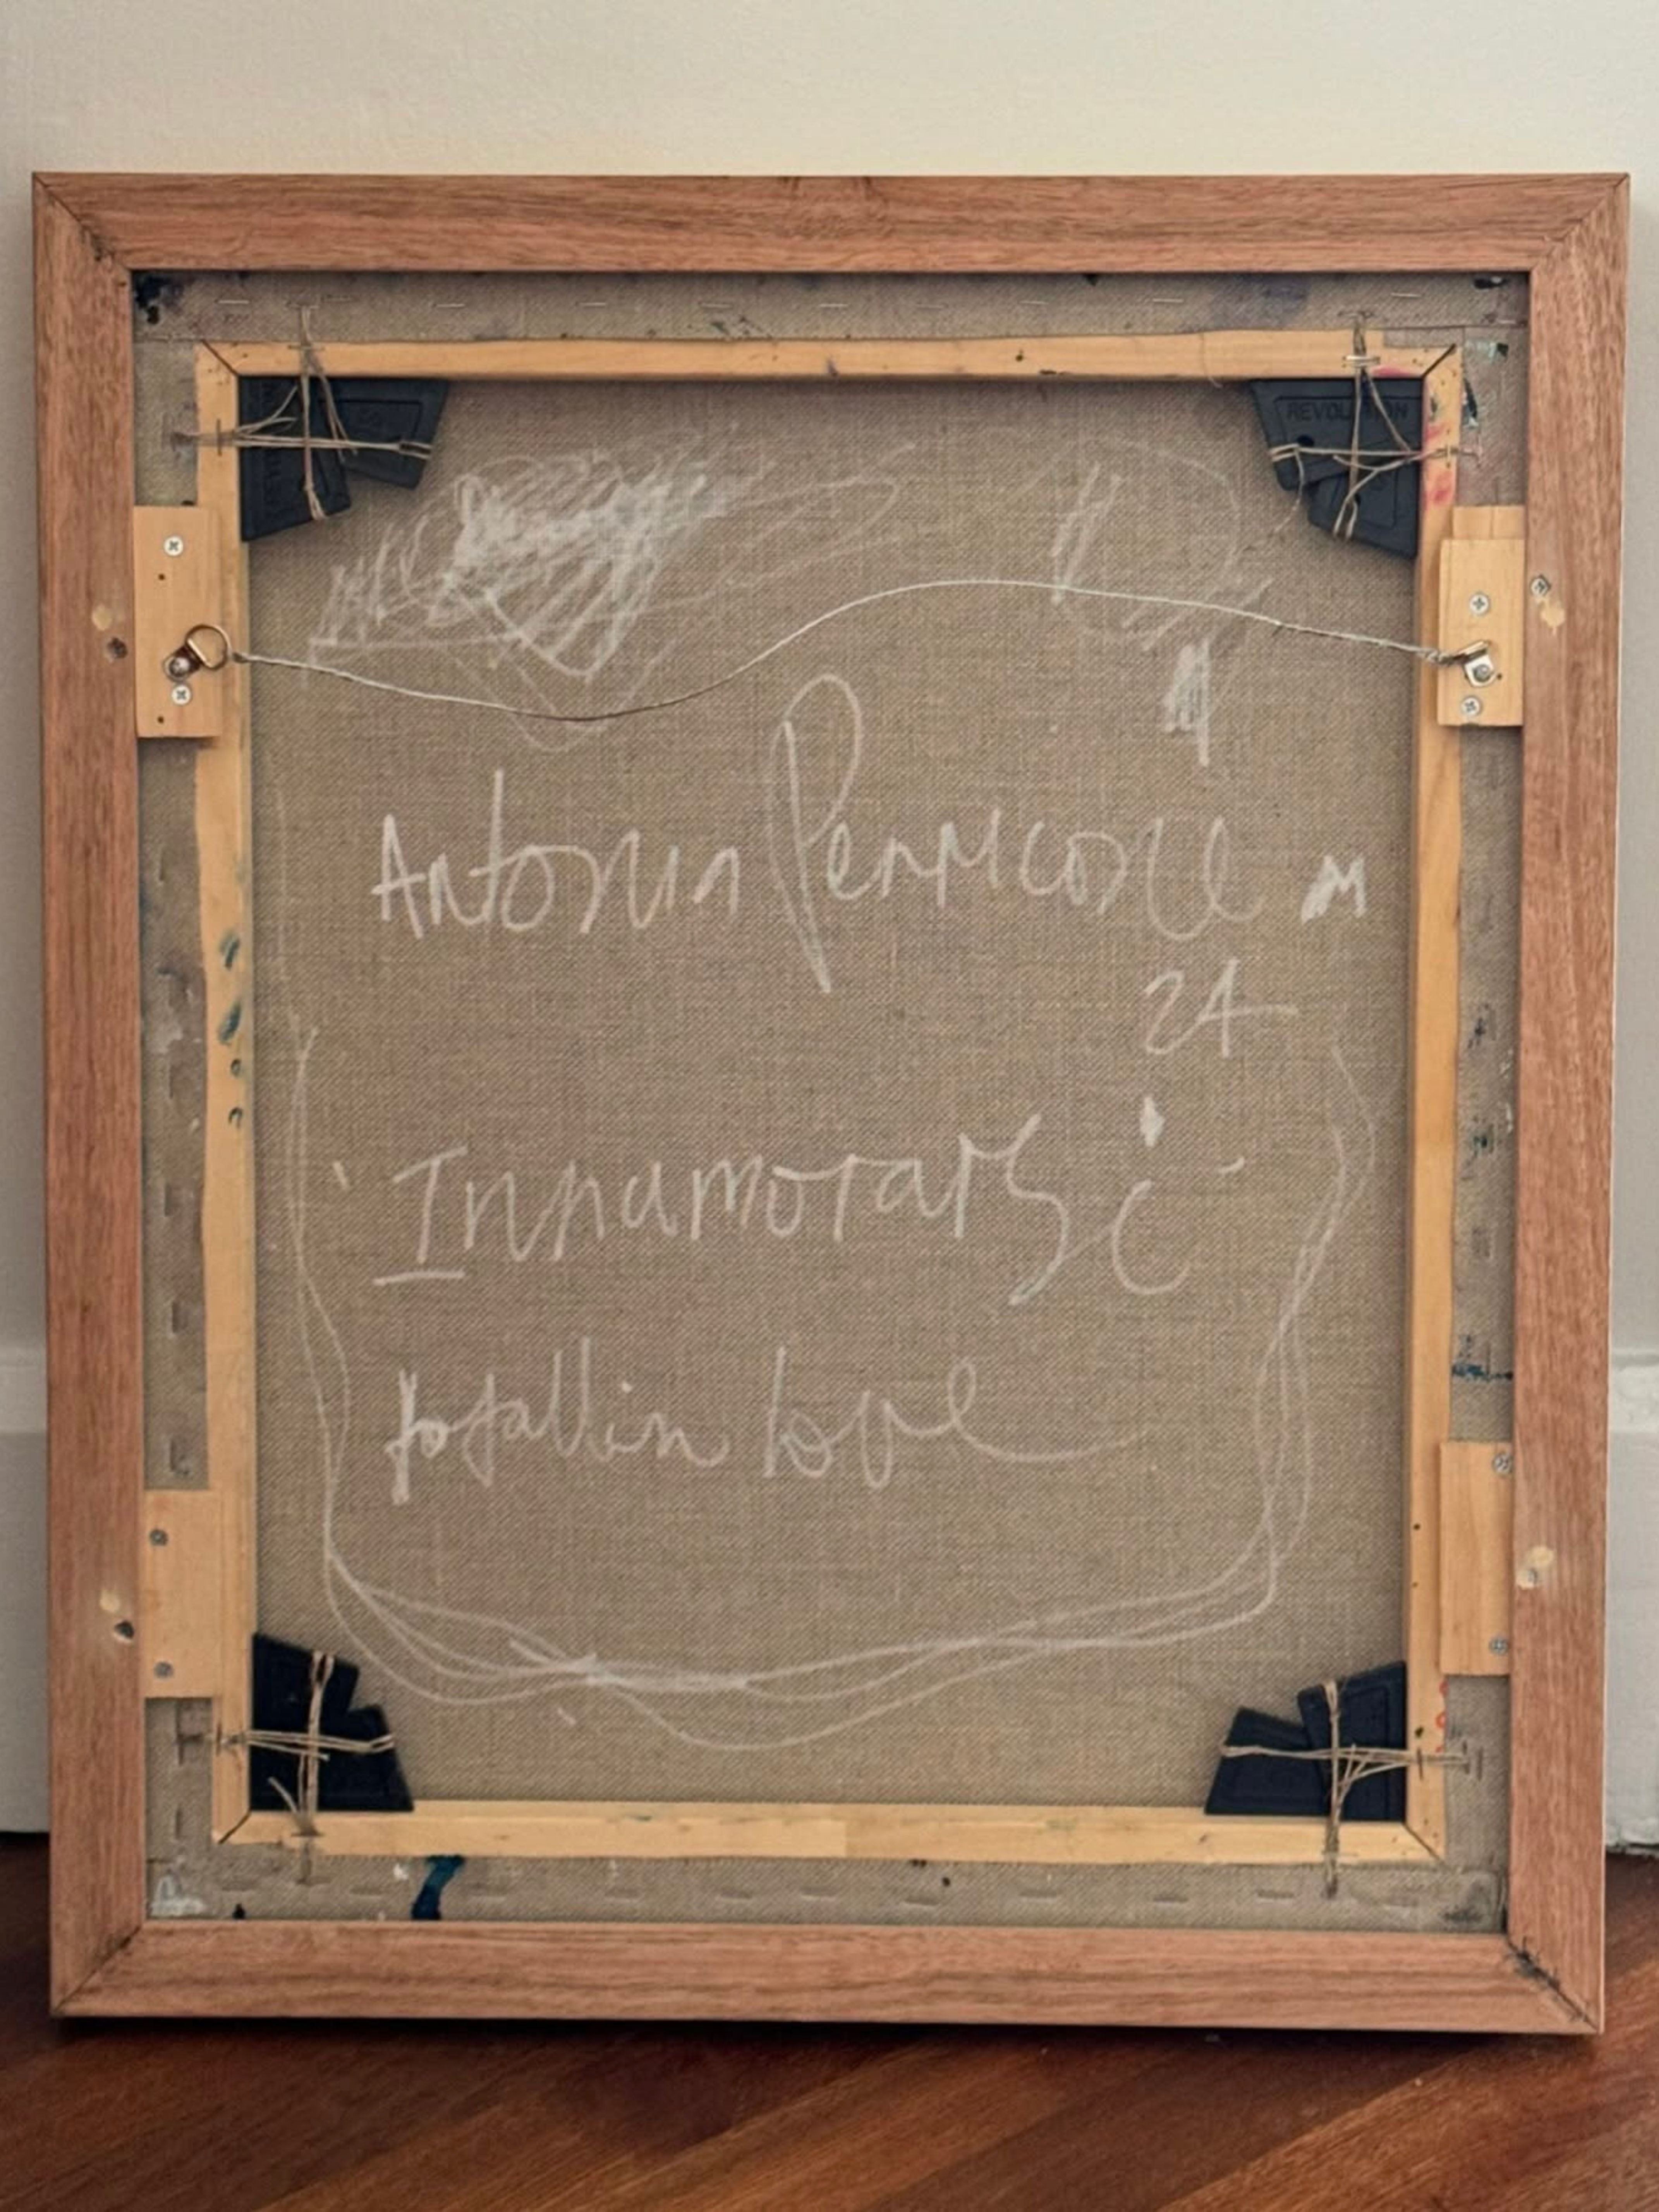 REVOLUTION
Antonia Perricone M
24
'Innamorarsi'
to fall in love